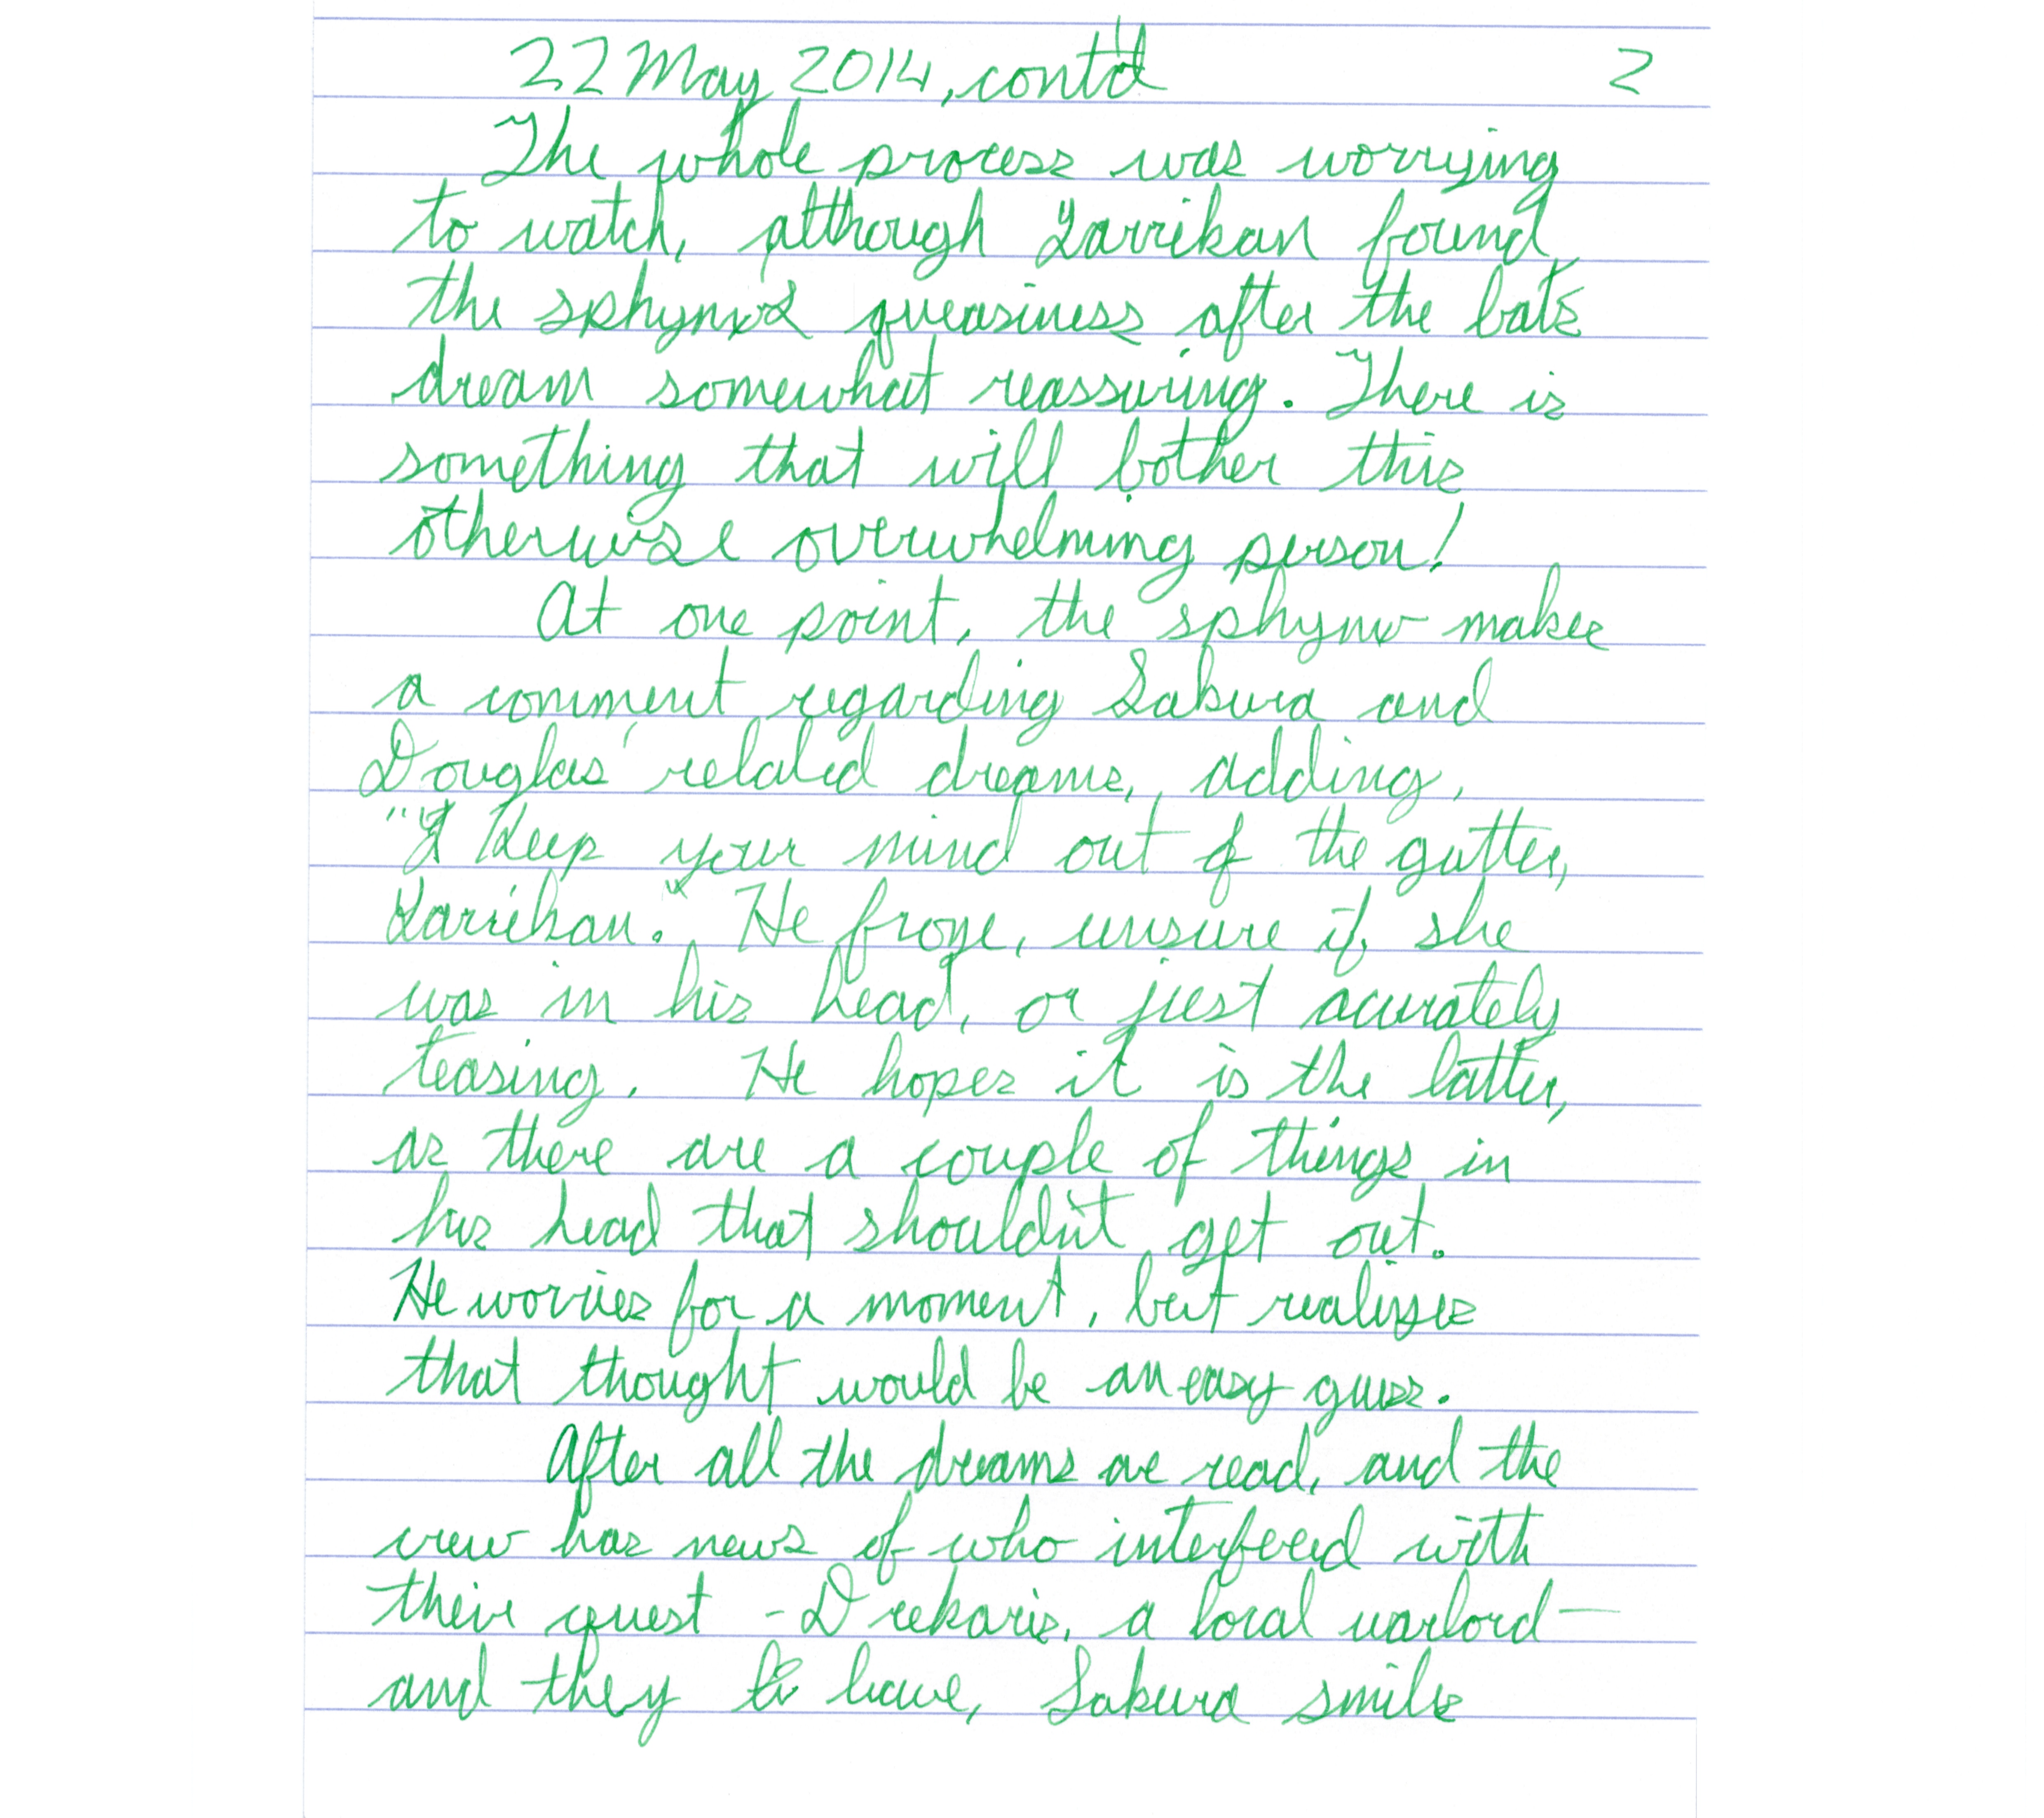 22 May 2014, cont'd 2
The whole process was worrying
to watch, although Zarrikan found
the sphynx's queasiness after the bat's
dream somewhat reassuring. There is
something that will bother this
otherwise overwhelming person!
At one point, the sphynx makes
a comment regarding Sakura and
Douglas' related dreams, adding,
"Keep your mind out of the gutter,
Zarrikan." He froze, unsure if she
was in his head, or just acurately
teasing. He hopes it is the latter,
as there are a couple of things in
his head that shouldn't get out.
He worries for a moment, but realizes
that thought would be an easy guess.
After all the dreams are read, and the
crew has news of who interfeed with
their quest - Drekaris, a local warlord -
and they leave, Sakura smiles